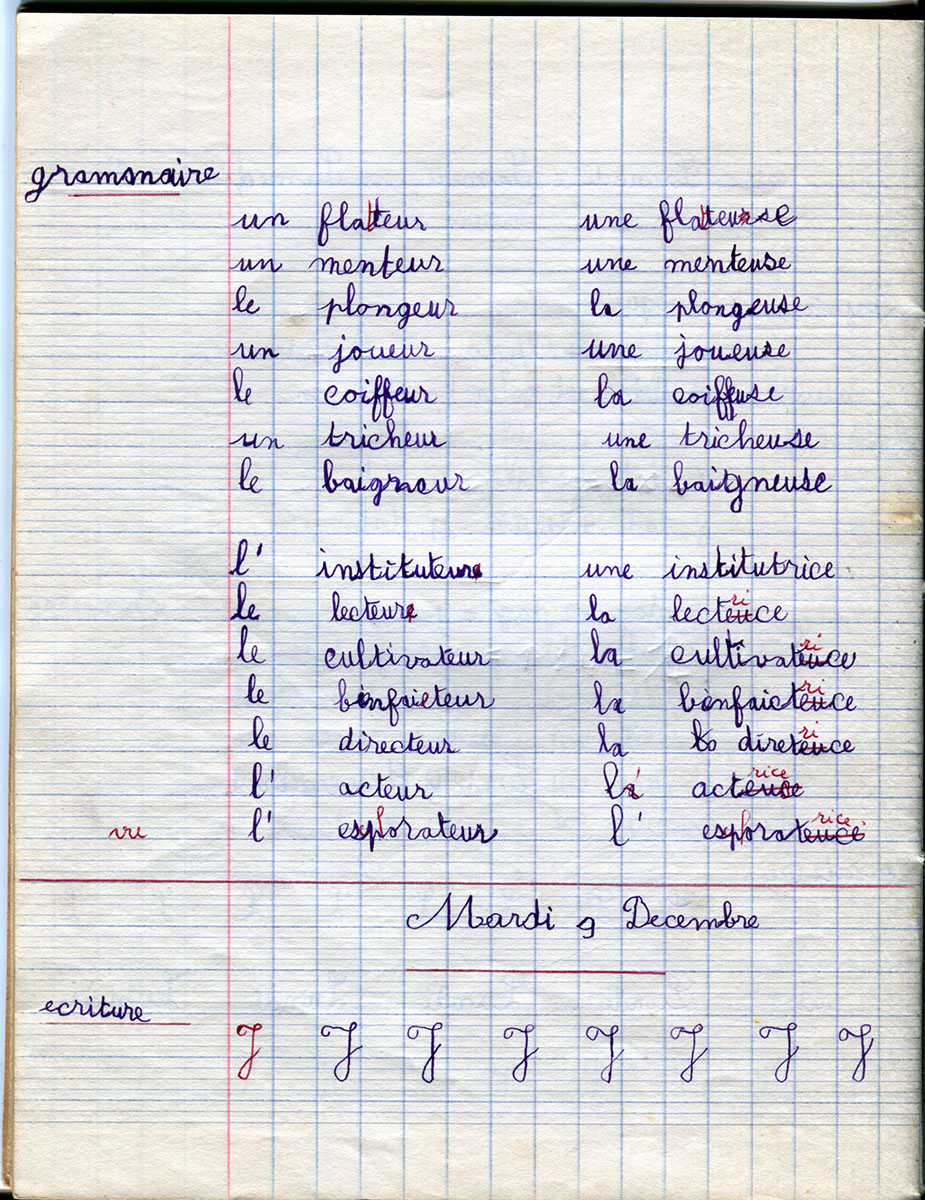 grammaire
un flatteur une flatteuse
un menteur une menteuse
le plongeur la plongeuse
un joueur une joueuse
le coiffeur la coiffeuse
un tricheur une tricheuse
le baigneur la baigneuse
l' instituteur une institutrice
ri
le lecteur la lecteuce
ri
le cultivateur la cultivateuce
ri
le bienfaicteur la bienfaicteuce
ri
le directeur la direteuce
rice
l' acteur l' acteuse
rice
vu l' explorateur l' explorateuce
Mardi 9 Decembre
ecriture
J J J J J J J J